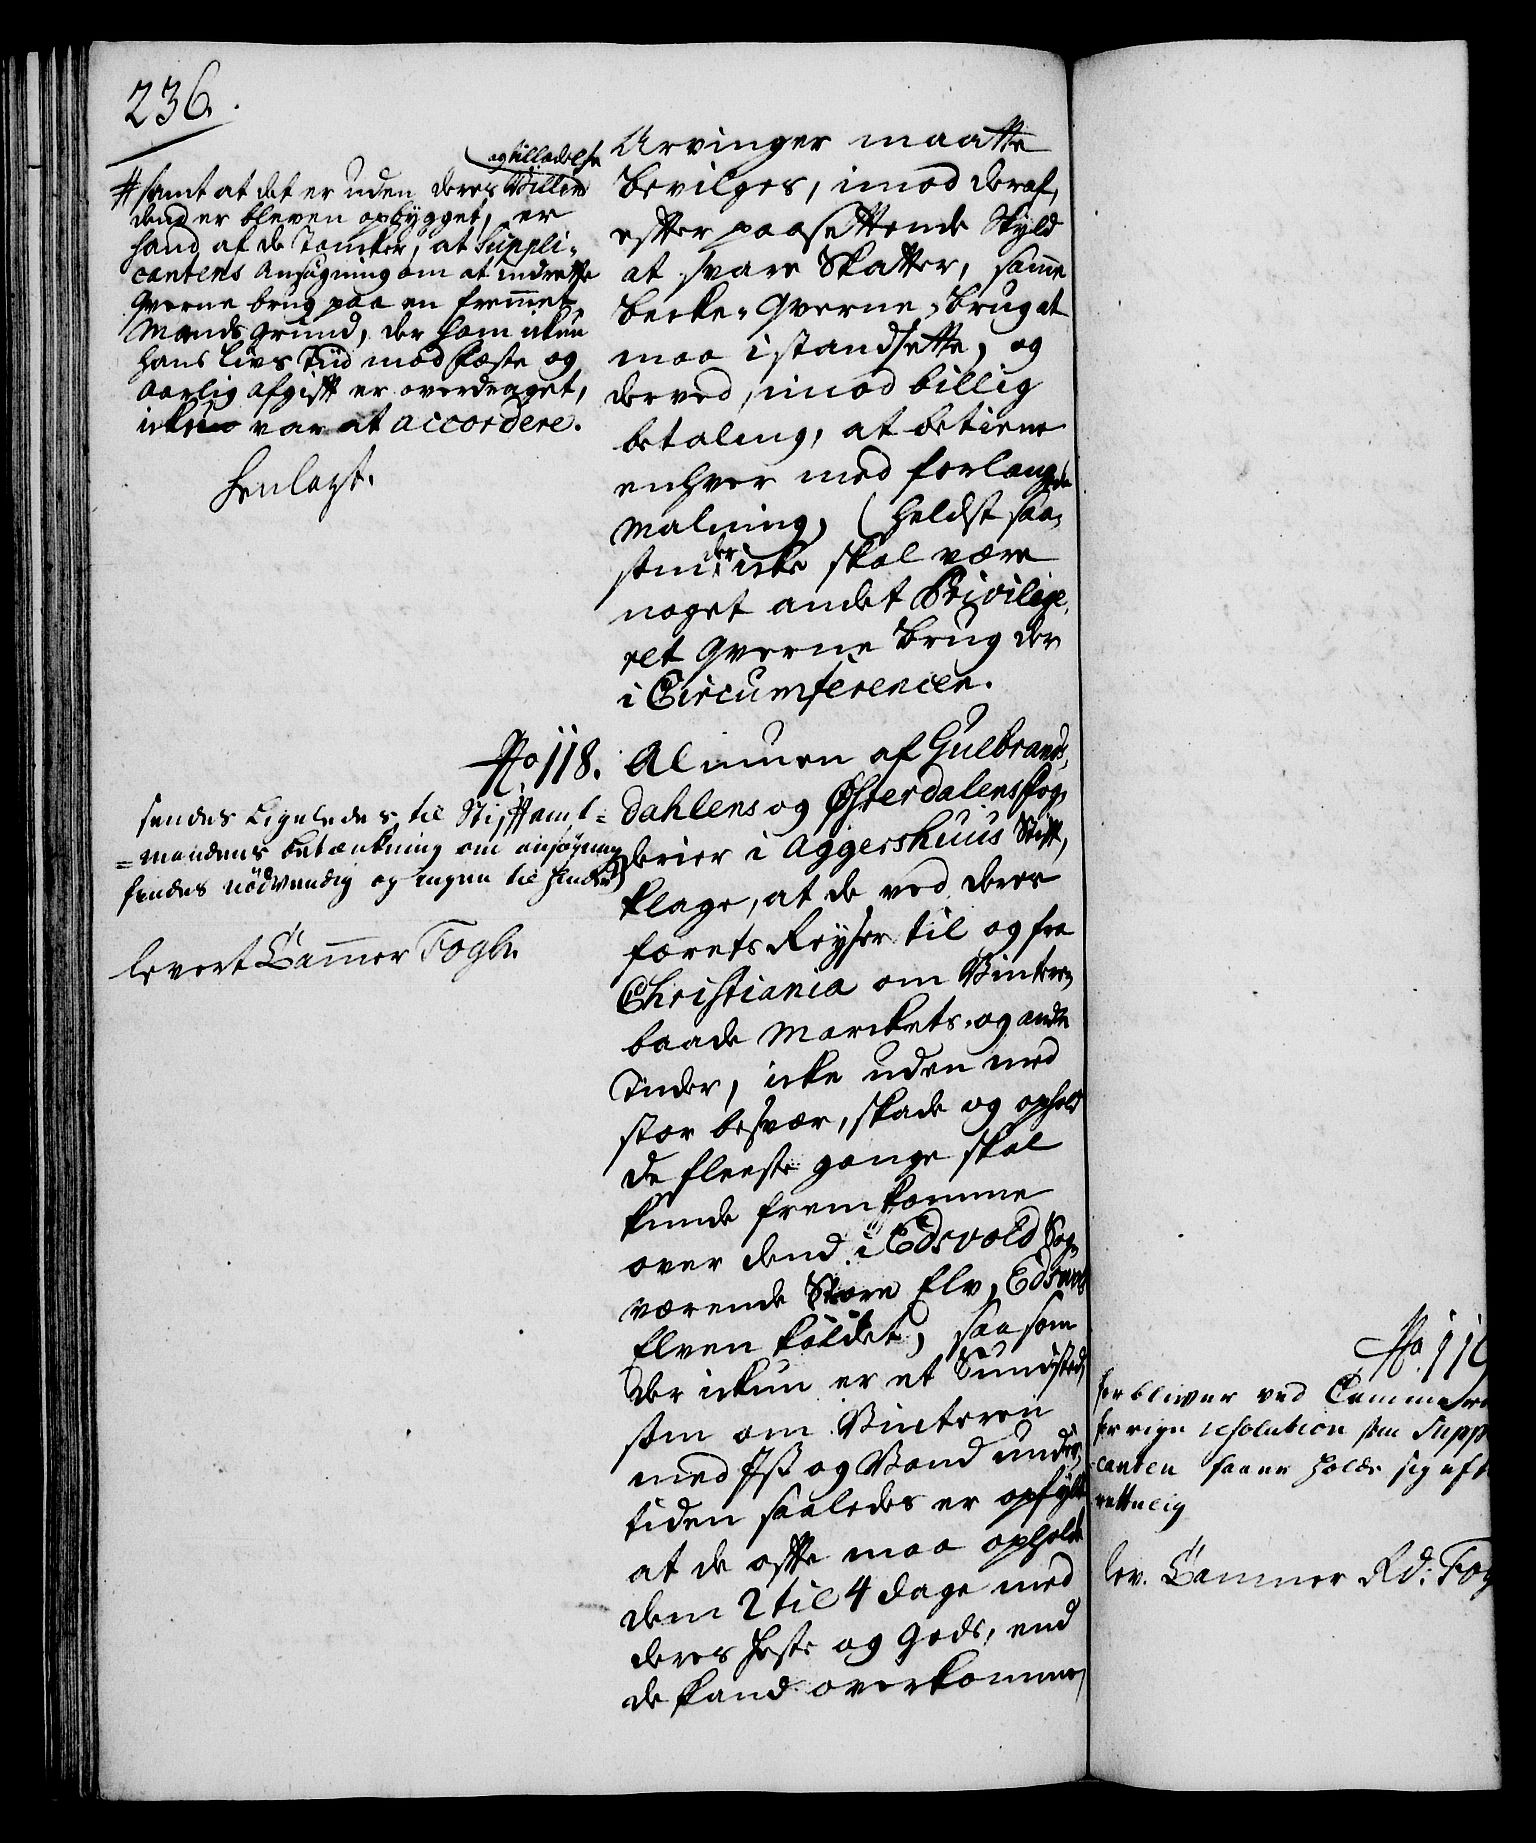 236.
og tilladelse
# samt at det er uden deres Villie
dend er bleven opbygget, er
hand af de Tancker, at Suppli-
cantens Ansøgning om at indrette
Qverne brug paa en fremmet
Mands grund, der ham ikkun
hans Livs Tiid mod fæste og
aarlig afgift er overdraget,
icke var at accordere.
Henlagt.
Arvinger maatte
bevilges, imod deraf,
efter paasættende Skyld
at svare Skatter, samme
Becke-Qverne-brug at
maa istandsette, og
derved, imod billig
betaling, at betiene
enhver med forlangende
Malning, (heldst saa-
som der icke skal være
noget andet Privilege-
ret Qverne brug der
i Circumferencen.
No. 118.
Almuen af Gulbrands-
dahlens og Østerdalens fog-
derier i Aggershuus Stift,
klage, at de ved deres
farets Reyser til og fra
Christiania om Vinteren
baade Marckets- og andre
Tider, icke uden med
stor besvær, skade og ophold
de fleeste gange skal
kunde fremkomme
over dend i Edsvold Sogn
værende Store Elv, Edsvold
Elven kaldet, saasom
der ickun er et Sundsted,
som om Vinteren
med Iss og Vand under-
tiden saaledes er opfyldt
at de offte maa opholde
dem 2 til 4 dage med
deres heste og Gods, end
de kand overkomme,
sendes Ligeledes til Stiftamt-
=mandens betænkning om ansøgning
findes nødvendig og ingen til hinder
levert Cammer Fogh.
No. 119
forbliver ved Cammer
forrige resolution som Supp
canten haver holde sig eft
rettelig
lev. Cammer Rd: Fog